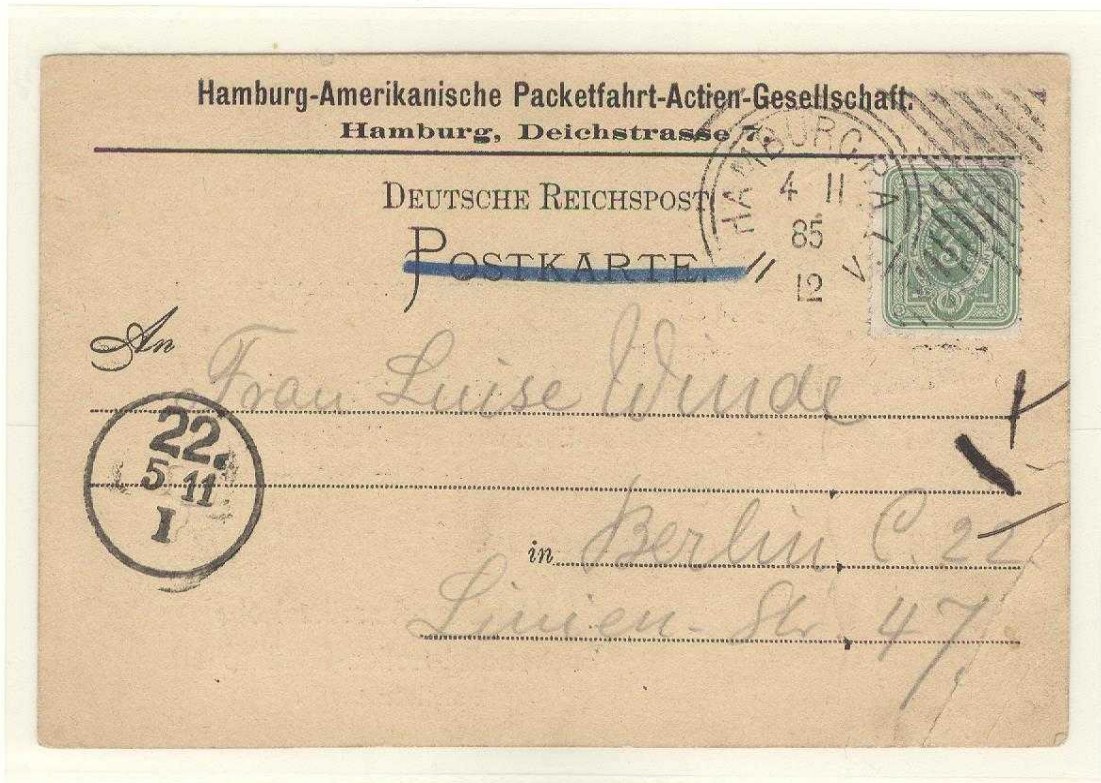 Hamburg-Amerikanische Packetfahrt-Actien-Gesellschaft.
Hamburg, Deichstrasse 7.
DEUTSCHE REICHSPOST
POSTKARTE.
HAMBURG P.A.
4 11
85
12 V
An Frau Luise Winde
22.
5 11
I
in Berlin C. 22
Linien-Str. 47.